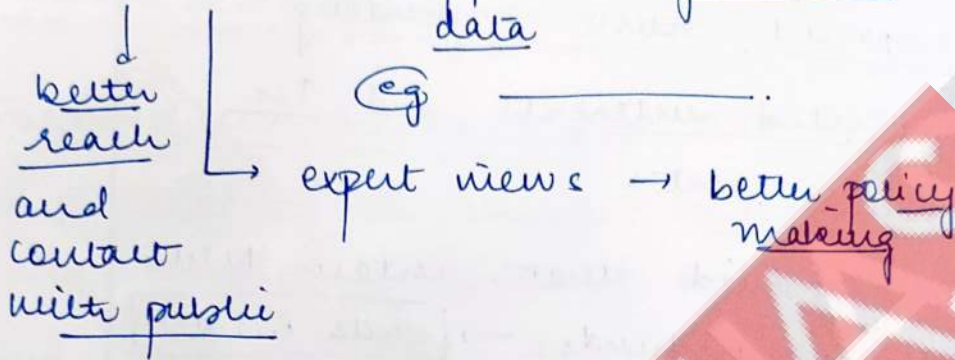 data
better
reach
and
contact
with public
eg
expert views → better policy
making